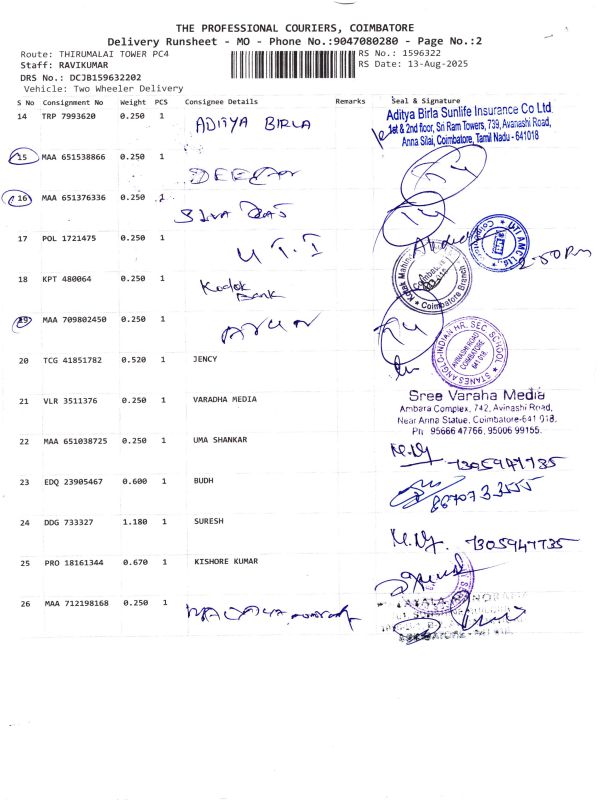 THE PROFESSIONAL COURIERS, COIMBATORE
Delivery Runsheet - MO - Phone No.:9047080280 - Page No.:2
Route: THIRUMALAI TOWER PC4
RS No.: 1596322
Staff: RAVIKUMAR
RS Date: 13-Aug-2025
DRS No.: DCJB159632202
Vehicle: Two Wheeler Delivery
S No Consignment No Weight PCS Consignee Details Remarks Seal & Signature
14 TRP 7993620 0.250 1 ADITYA BIRLA
Aditya Birla Sunlife Insurance Co Ltd
1st & 2nd floor, Sri Ram Towers, 739, Avanashi Road,
Anna Silai, Coimbatore, Tamil Nadu - 641018
15 MAA 651538866 0.250 1
16 MAA 651376336 0.250 1 SIVA
17 POL 1721475 0.250 1 U T I
UTI AMC Ltd
2-50 Pm
18 KPT 480064 0.250 1 Kodak Bank
Kotak Mahindra
Coimbatore Branch
19 MAA 709802450 0.250 1 ARUN
20 TCG 41851782 0.520 1 JENCY
STANES ANGLO-INDIAN HR. SEC. SCHOOL
AVINASHI ROAD
COIMBATORE
641 018
21 VLR 3511376 0.250 1 VARADHA MEDIA
Sree Varaha Media
Ambara Complex, 742, Avinashi Road,
Near Anna Statue, Coimbatore-641 018.
Ph: 95666 47766, 95006 99155.
22 MAA 651038725 0.250 1 UMA SHANKAR
7305947735
23 EDQ 23905467 0.600 1 BUDH
8670733555
24 DDG 733327 1.180 1 SURESH
7305947735
25 PRO 18161344 0.670 1 KISHORE KUMAR
26 MAA 712198168 0.250 1